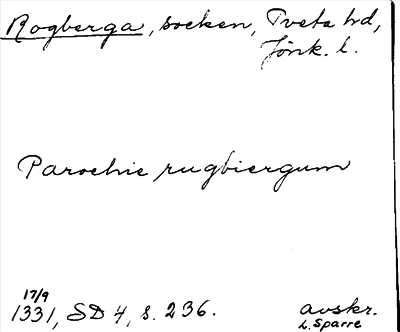 Rogberga, socken, Tveta hd,
Jönk. l.
Parochie rugbiergum
17/9
1331, SD 4, s. 236.
avskr.
L. Sparre